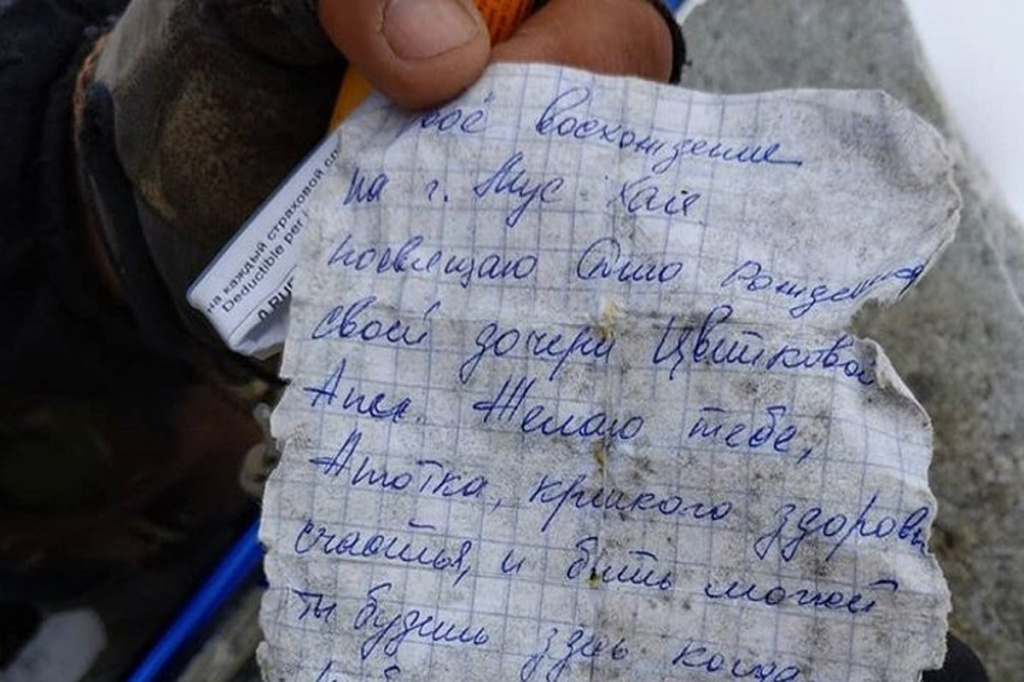 на каждый страховой сл
Deductible per
0 RU
моё восхождение
на г. Мус Хая
посвящаю Дню Рождения
своей дочери Цветковой
Ане. Желаю тебе,
Анютка, крепкого здоровь
счастья, и быть может
ты будешь здесь когда